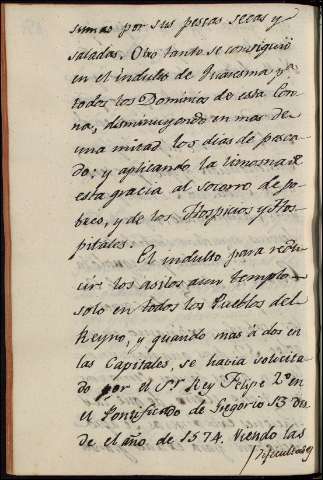 sumas por sus pescas secas y
saladas. Otro tanto se consiguió
en el indulto de Quaresma pª
todos los Dominios de esta Coro
na, disminuyendo en mas de
una mitad los dias de pesca
do: y aplicando la limosna de
esta gracia al socorro de po
bres, y de los Hospicios y Hos
pitales.
El indulto para redu
cir los asilos a un templo
solo en todos los Pueblos del
Reyno, y quando mas á dos en
las Capitales, se havia solicita
do por el Sr Rey Felipe 2º en
el Pontificado de Gregorio 13 des
de el año de 1574. Viendo las
dificultades